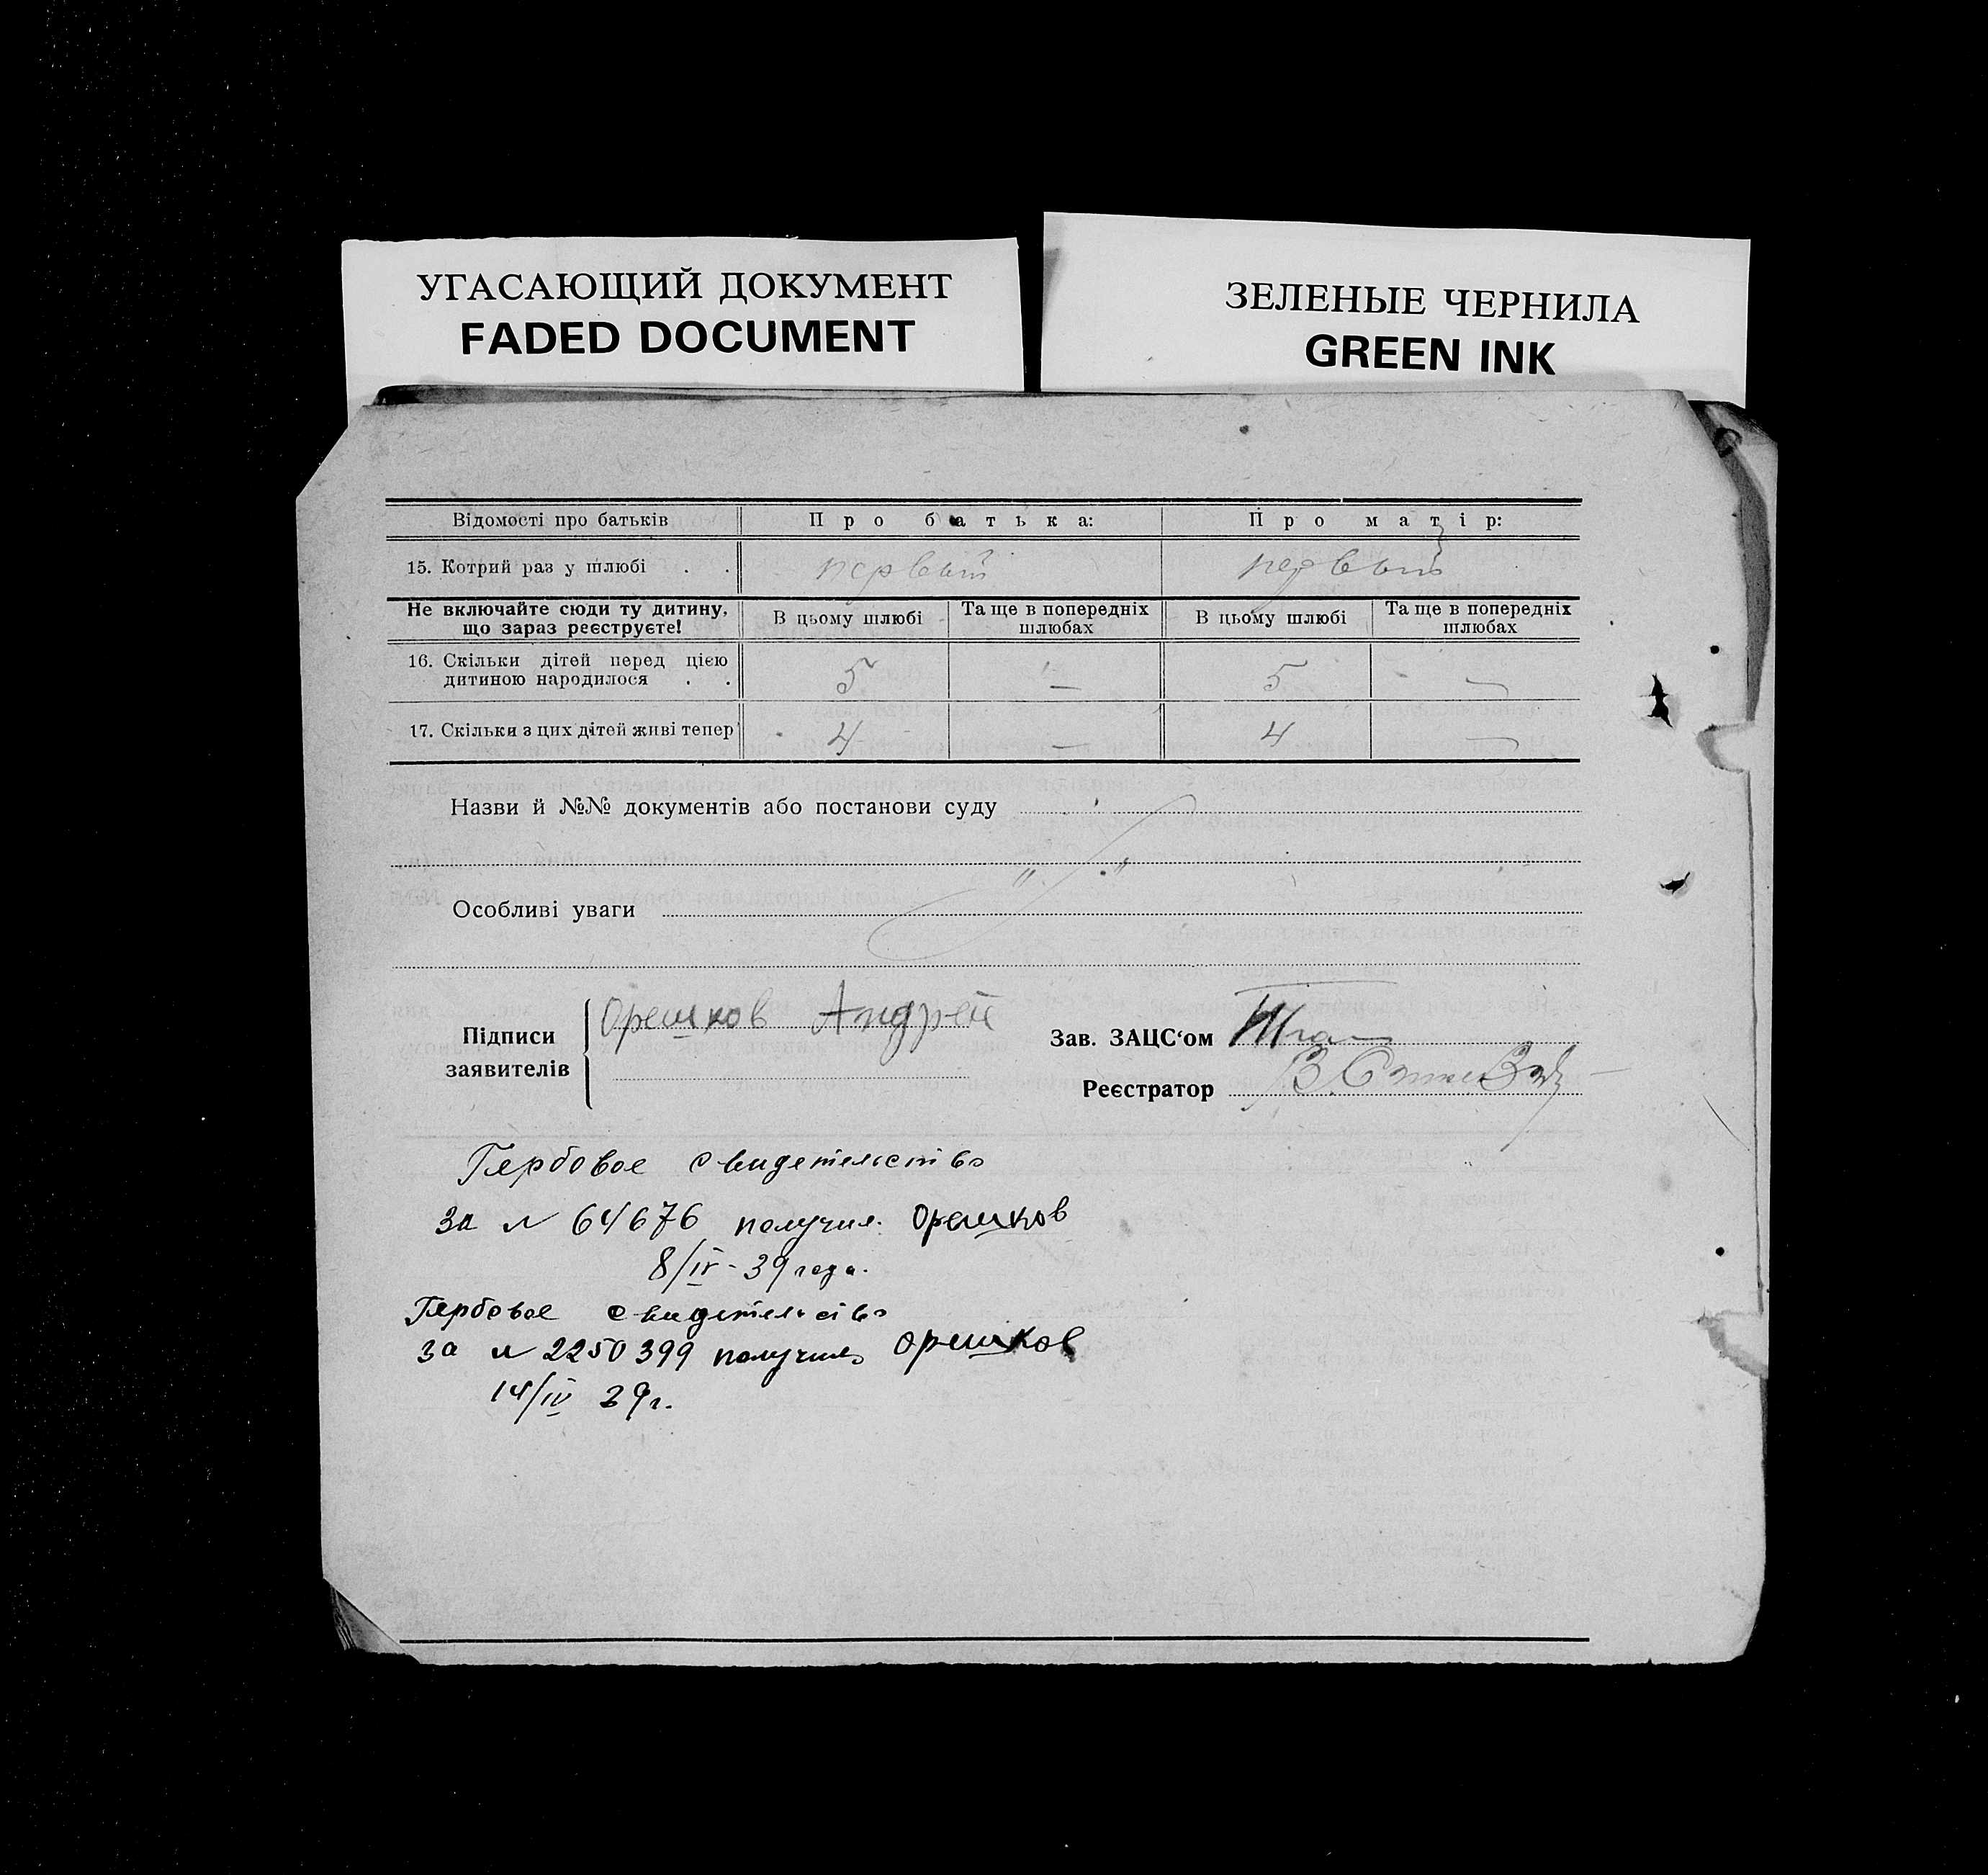 УГАСАЮЩИЙ ДОКУМЕНТ
FADED DOCUMENT
ЗЕЛЕНЫЕ ЧЕРНИЛА
GREEN INK
Відомості про батьків Про батька: Про матір:
15. Котрий раз у шлюбі . . первый первый
Не включайте сюди ту дитину, що зараз реєструєте! В цьому шлюбі Та ще в попередніх шлюбах В цьому шлюбі Та ще в попередніх шлюбах
16. Скільки дітей перед цією
дитиною народилося . . 5 — 5 —
17. Скільки з цих дітей живі тепер 4 — 4 —
Назви й №№ документів або постанови суду
Особливі уваги
Підписи заявителів Орешков Андрей
Зав. ЗАЦС‘ом
Реєстратор
Гербовое свидетельство
за № 64676 получил. Орешков
8/IV - 39 года.
Гербовое свидетельство
за № 2250399 получил Орешков
14/IV 39 г.